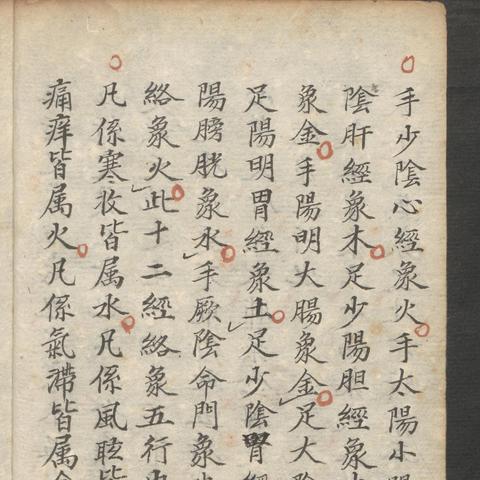 手少陰心經象火手太陽小
陰肝經象木足少陽胆經象
象金手陽明大腸象金足大
足陽明胃經象土足少陰胃
陽膀胱象水手厥陰命門象
絡象火此十二經絡象五行
凡係寒收皆属水凡係風眩
痛痒皆属火凡係氣滯皆属